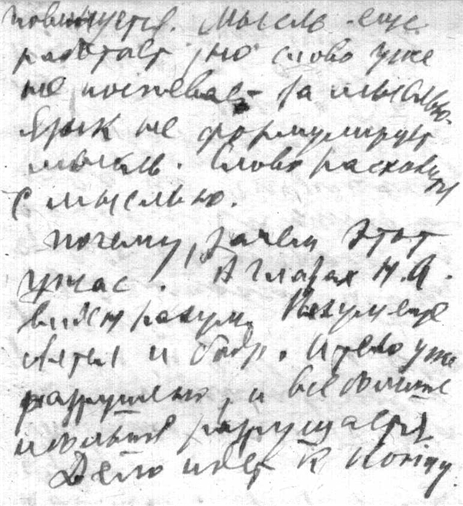 повинуется. Мысль еще
работает, но слово уже
не поспевает за мыслью.
Язык не формулирует
мысль. Слово расходится
с мыслью.
Почему, зачем этот
ужас. В глазах Н.А.
виден разум. Разум еще
светел и бодр. А тело уже
разрушено, и все больше
и больше разрушается.
Дело идет к концу.